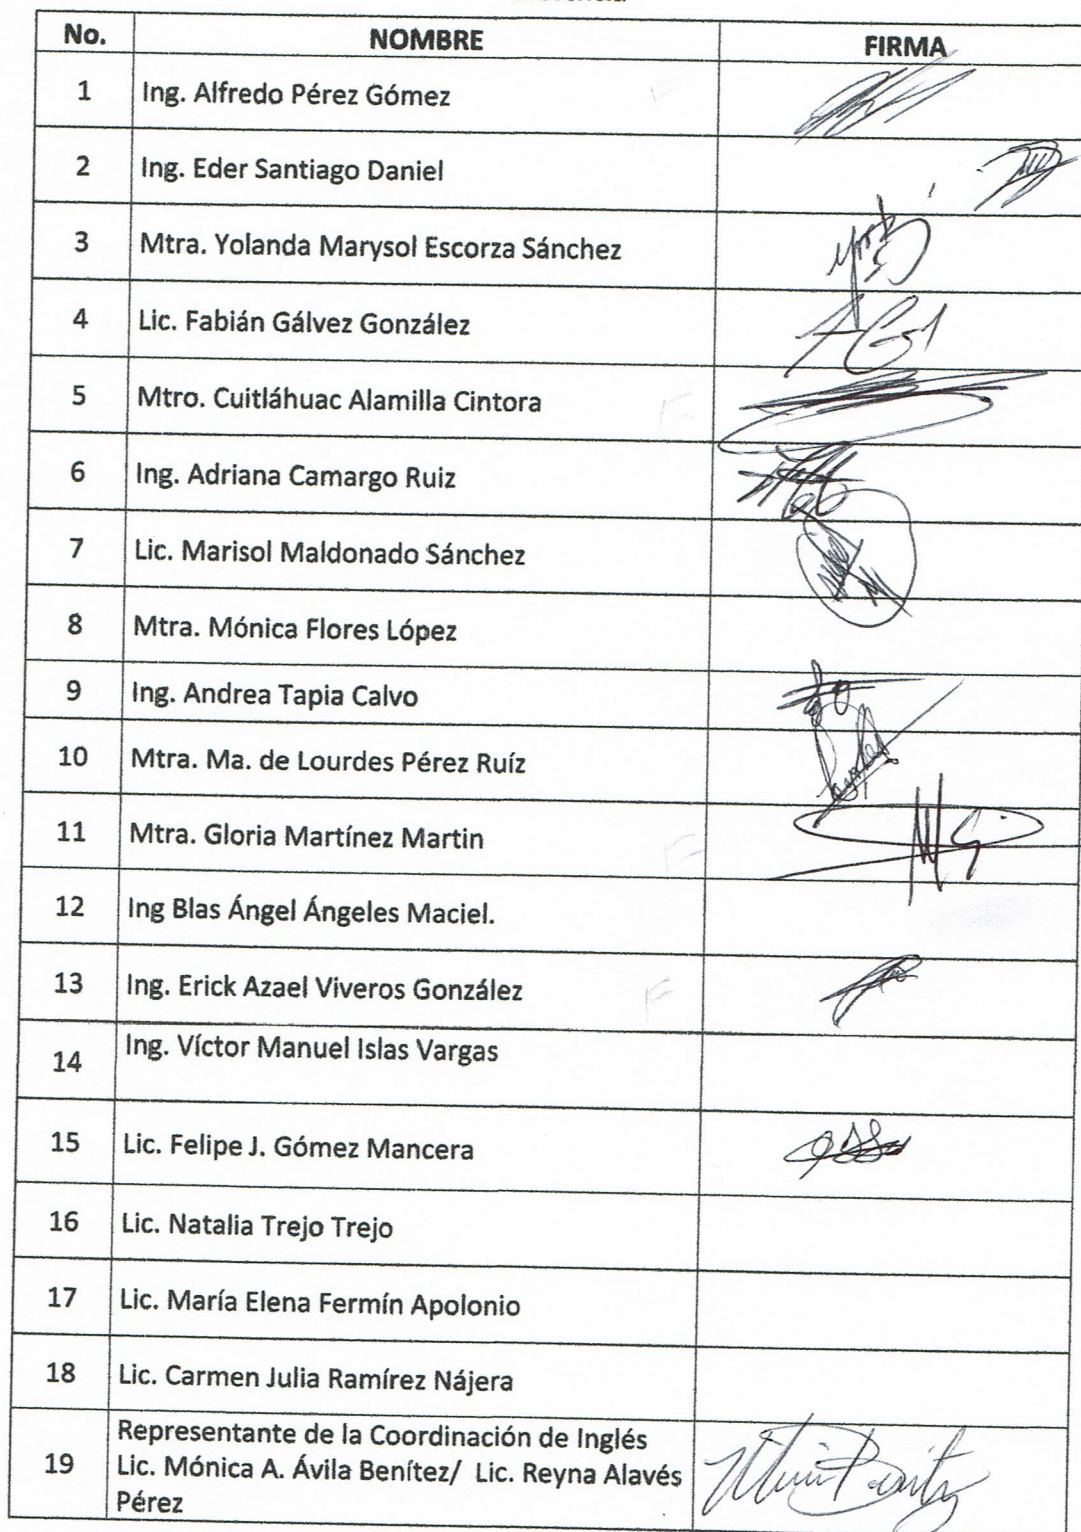 No. NOMBRE FIRMA
1 Ing. Alfredo Pérez Gómez
2 Ing. Eder Santiago Daniel
3 Mtra. Yolanda Marysol Escorza Sánchez
4 Lic. Fabián Gálvez González
5 Mtro. Cuitláhuac Alamilla Cintora
6 Ing. Adriana Camargo Ruiz
7 Lic. Marisol Maldonado Sánchez
8 Mtra. Mónica Flores López
9 Ing. Andrea Tapia Calvo
10 Mtra. Ma. de Lourdes Pérez Ruíz
11 Mtra. Gloria Martínez Martin
12 Ing Blas Ángel Ángeles Maciel.
13 Ing. Erick Azael Viveros González
14 Ing. Víctor Manuel Islas Vargas
15 Lic. Felipe J. Gómez Mancera
16 Lic. Natalia Trejo Trejo
17 Lic. María Elena Fermín Apolonio
18 Lic. Carmen Julia Ramírez Nájera
Representante de la Coordinación de Inglés
19 Lic. Mónica A. Ávila Benítez/ Lic. Reyna Alavés
Pérez